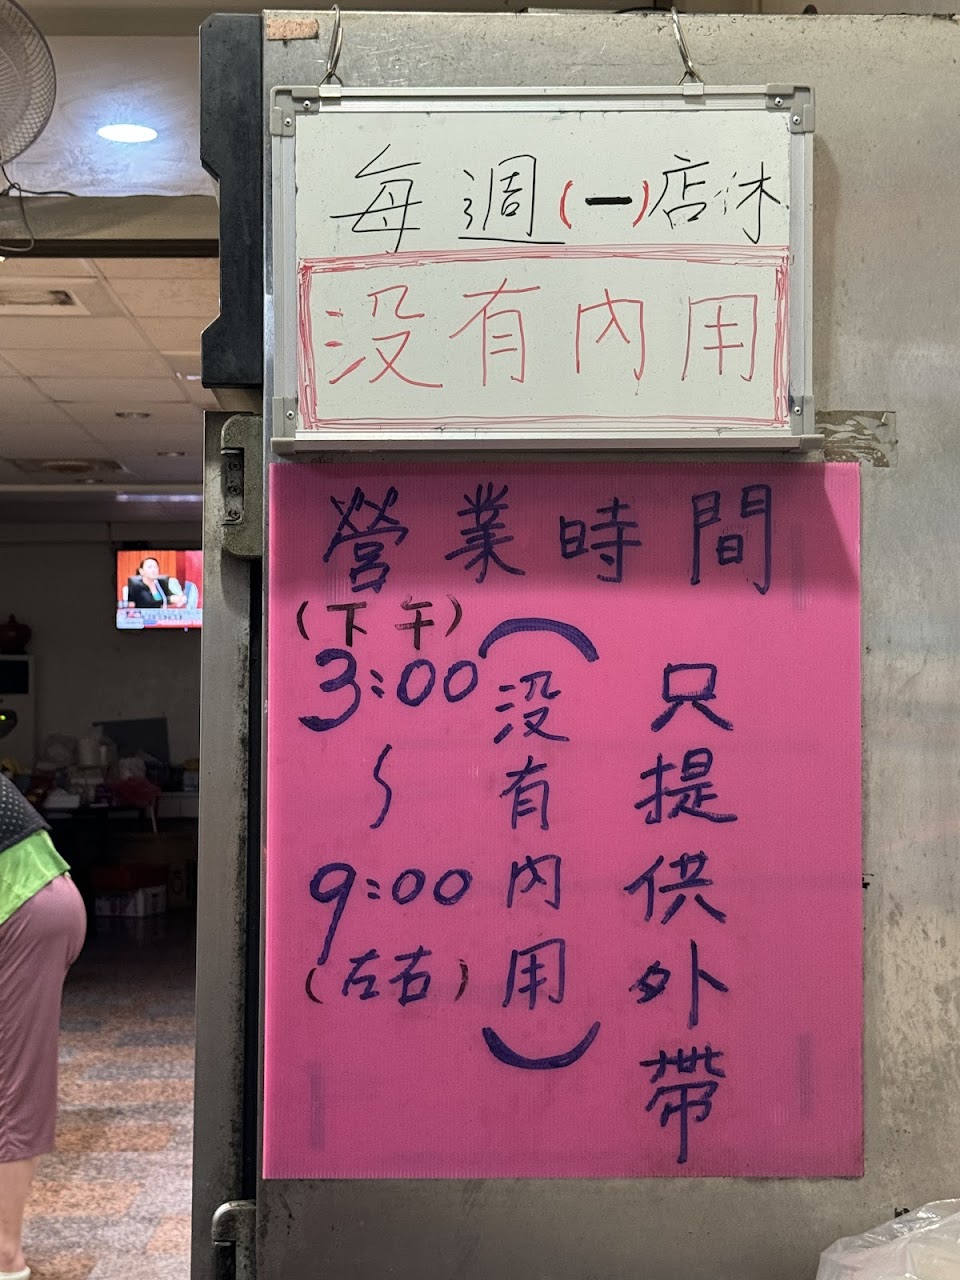 每週(一)店休
没有內用
營業時間
只提供外帶
(没有內用)
(下午)
3:00
~
9:00
(左右)